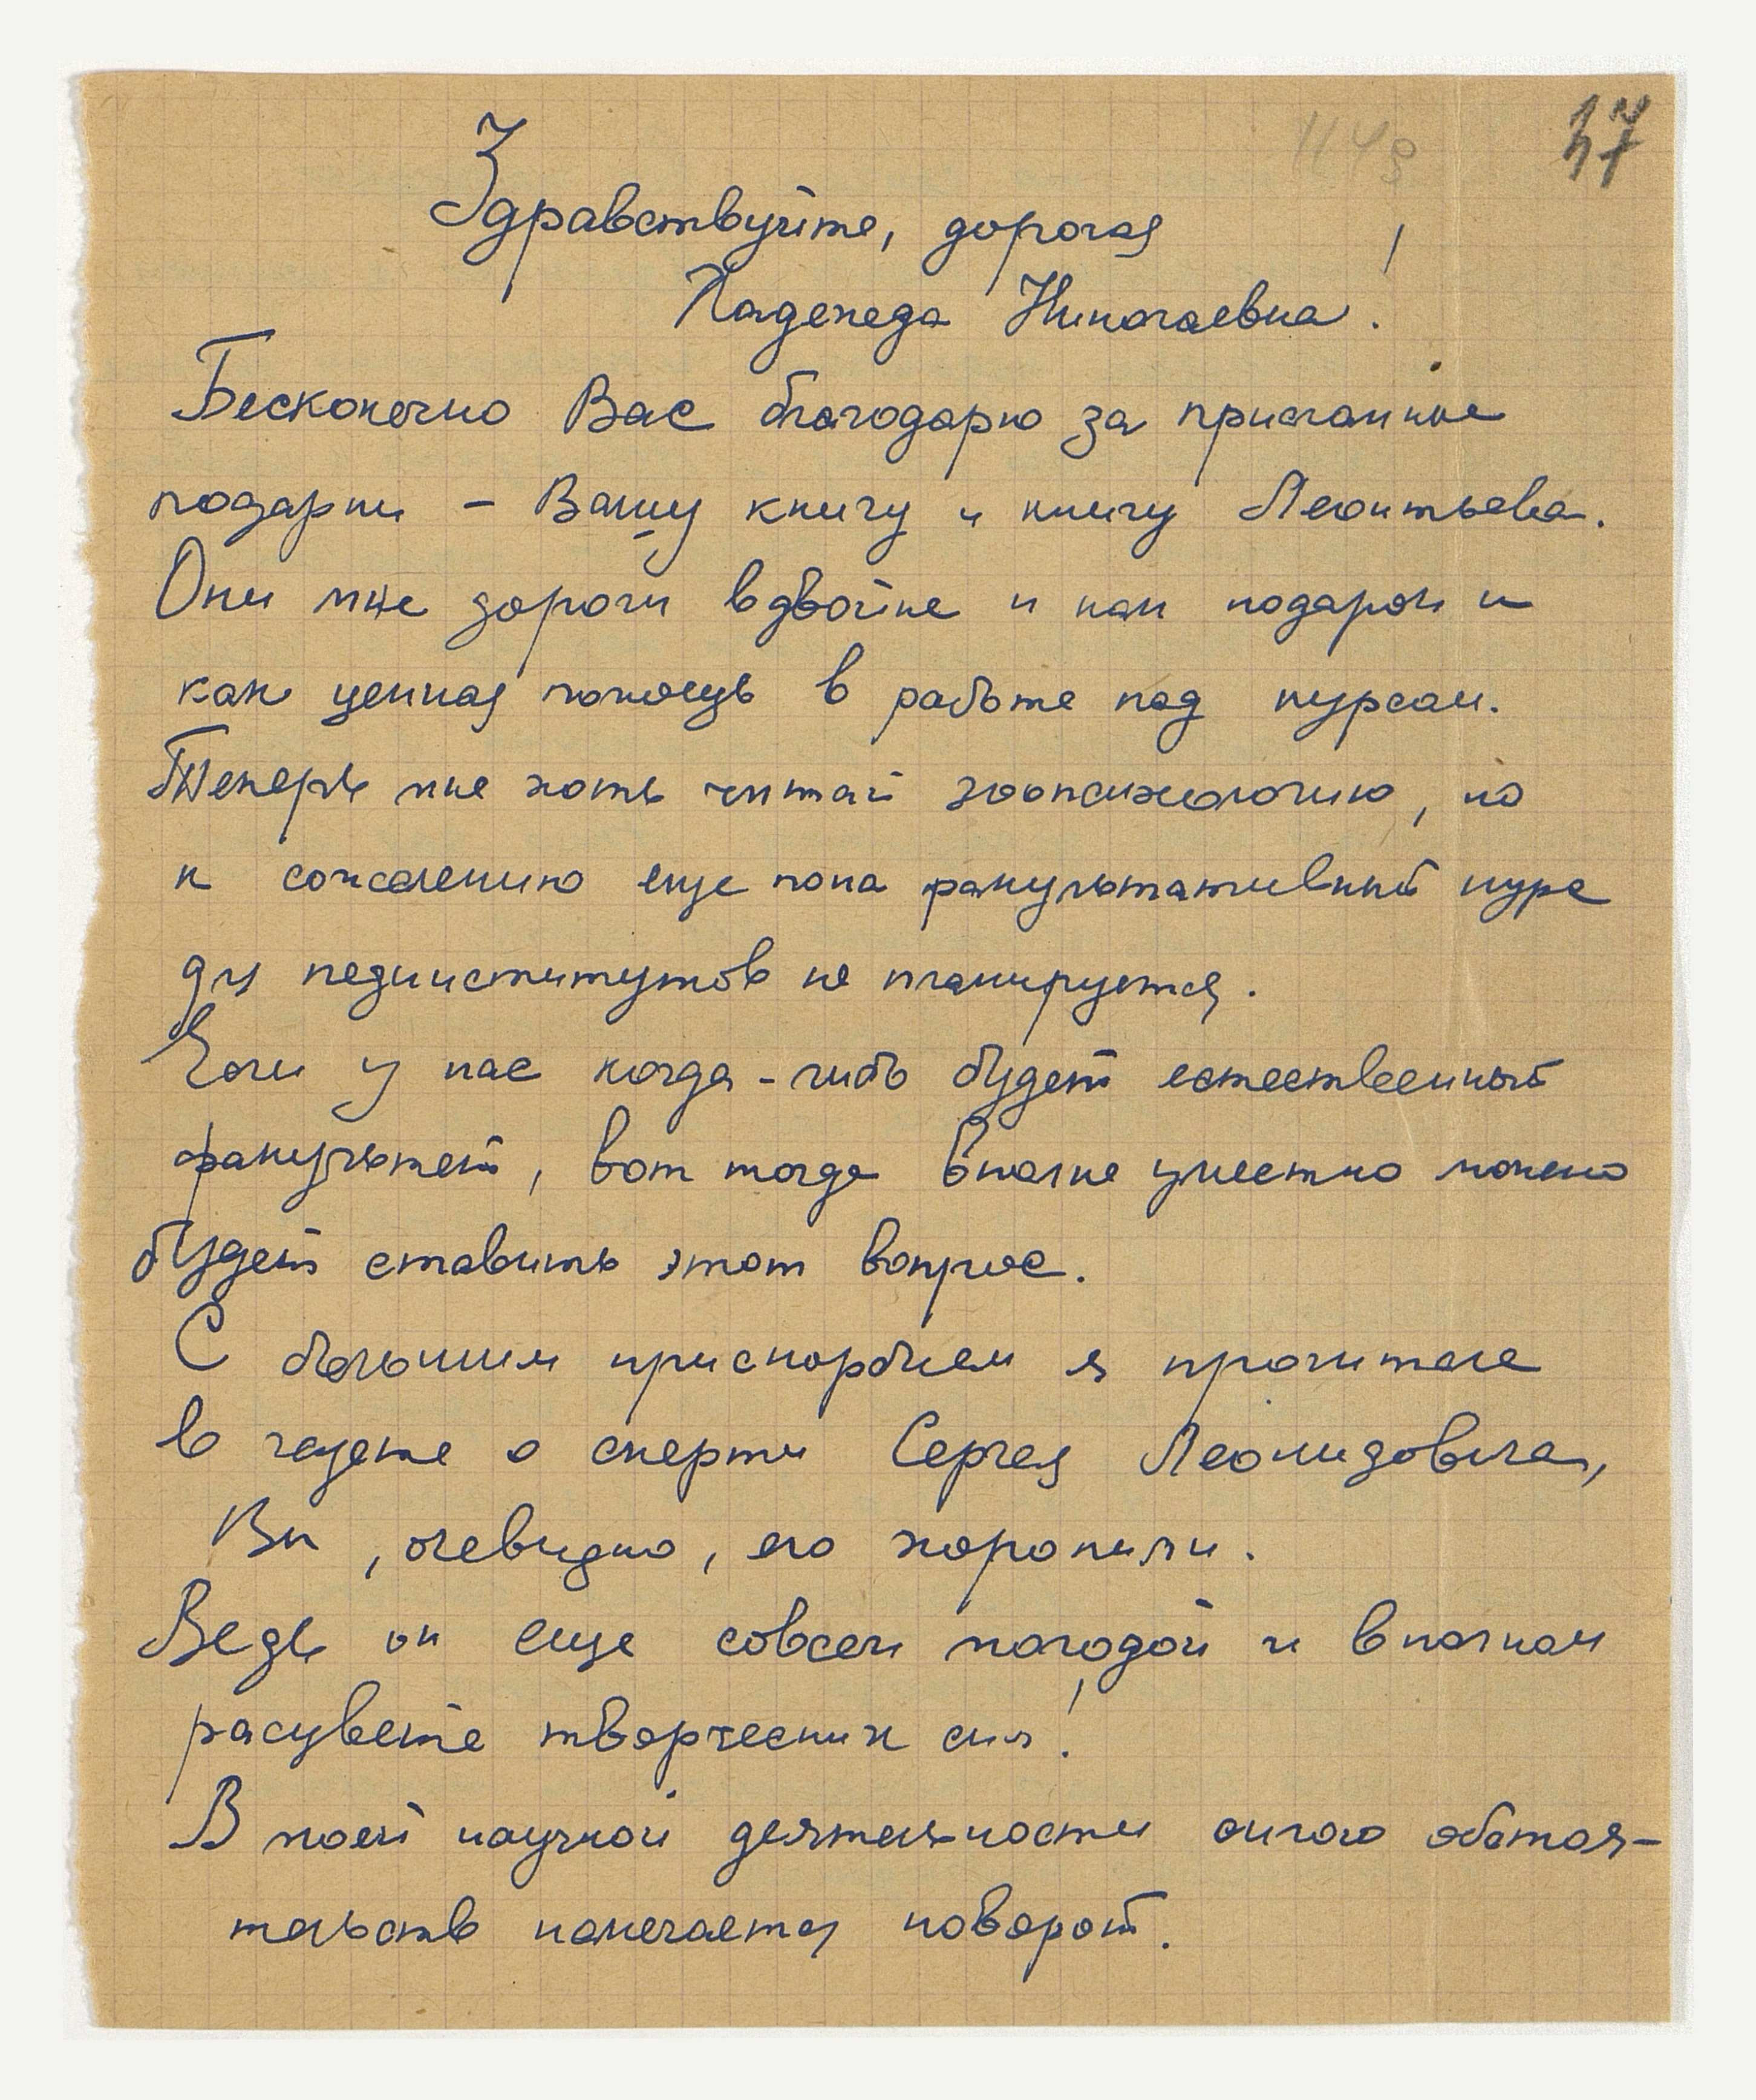 47
Здравствуйте, дорогая
Надежда Николаевна!
Бесконечно Вас благодарю за присланные
подарки – Вашу книгу и книгу Леонтьева.
Они мне дороги вдвойне и как подарок и
как ценная помощь в работе над курсом.
Теперь мне хоть читай зоопсихологию, но
к сожалению еще пока факультативный курс
для пединститутов не планируется.
Если у нас когда-либо будет естественный
факультет, вот тогда вполне уместно можно
будет ставить этот вопрос.
С большим прискорбием я прочитала
в газете о смерти Сергея Леонидовича,
Вы, очевидно, его хоронили.
Ведь он еще совсем молодой и в полном
расцвете творческих сил!
В моей научной деятельности силою обстоя-
тельств намечается поворот.